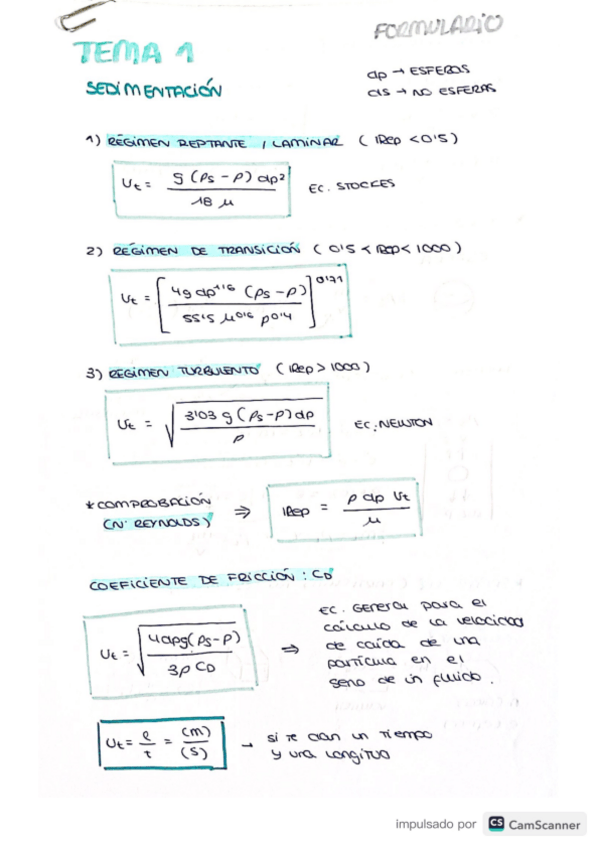 FORMULARIO
TEMA 1
SEDIMENTACIÓN
dp → ESFEROS
ds → NO ESFERAS
1) RÉGIMEN REPTANTE / LAMINAR ( IRep < 0'5 )
Ut = g (ρs - ρ) dp² / 18 μ
EC. STOCKES
2) RÉGIMEN DE TRANSICIÓN ( 0'5 < IRep < 1000 )
Ut = [ 4g dp^1'6 (ρs - ρ) / 55'5 μ^0'6 ρ^0'4 ]^0'71
3) RÉGIMEN TURBULENTO ( IRep > 1000 )
Ut = √( 3'03 g (ρs - ρ) dp / ρ )
EC. NEWTON
* COMPROBACIÓN
(Nº REYNOLDS)
⇒ IRep = ρ dp Ut / μ
COEFICIENTE DE FRICCIÓN : CD
Ut = √( 4dpg (ρs - ρ) / 3ρ CD )
⇒ EC. General para el
cálculo de la velocidad
de caída de una
partícula en el
seno de un fluido.
Ut = l / t = (m) / (s)
→ si te dan un tiempo
y una longitud
impulsado por CS CamScanner